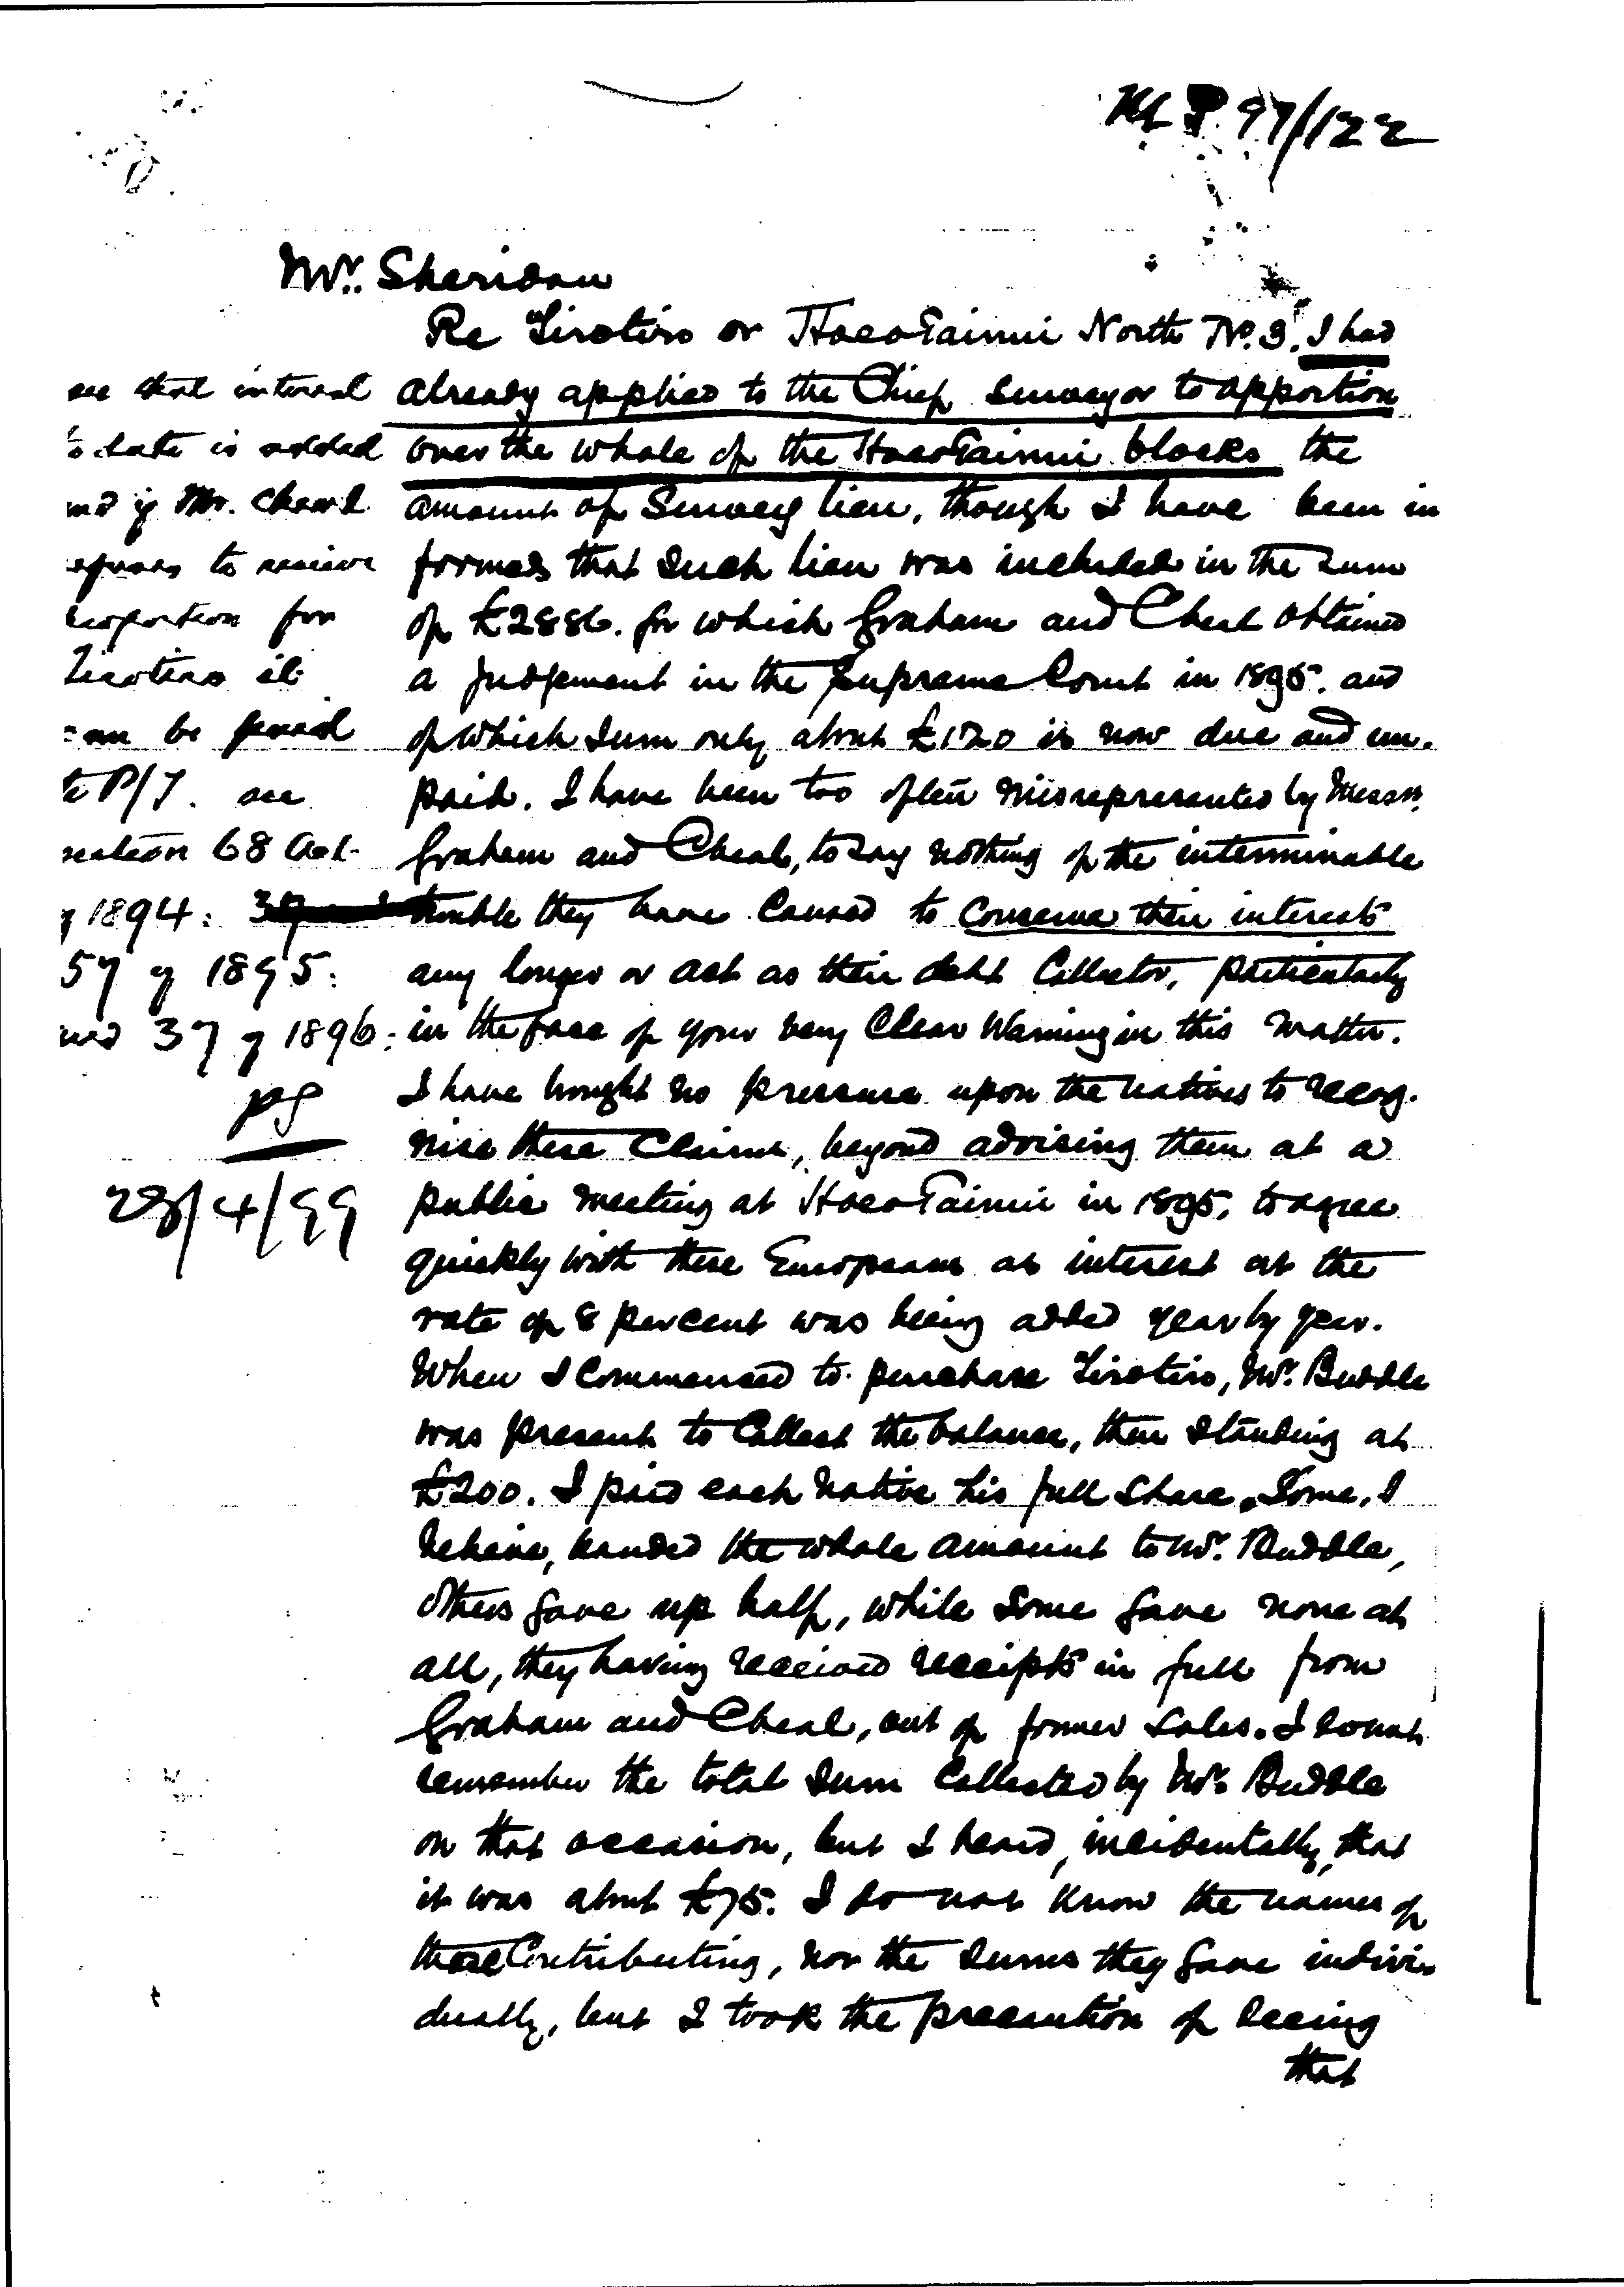 N.L.P. 97/122
Mr. Sheridan
Re Tirotiro or Hoeotainui North No. 3. I had
already applied to the Chief Surveyor to apportion
over the whole of the Hoeotainui blocks the
amount of Survey lien, though I have been in
formed that such lien was included in the sum
of £2886. for which Graham and Cheal obtained
a judgement in the Supreme Court in 1895. and
of which sum only about £120 is now due and un-
paid. I have been too often misrepresented by Messrs.
Graham and Cheal, to say nothing of the interminable
trouble they have caused to conserve their interests
any longer or act as their debt Collector, particularly
in the face of your very clear Warning in this matter.
I have brought no pressure upon the natives to recog-
nise these Claims, beyond advising them at a
public meeting at Hoeotainui in 1895, to agree
quickly with these Europeans as interest at the
rate of 8 per cent was being added year by year.
When I commenced to purchase Tirotiro, Mr. Buddle
was present to Collect the balance, then standing at
£200. I paid each native his full share, Some, I
believe, handed the whole amount to Mr. Buddle,
others gave up half, while some gave none at
all, they having received receipts in full from
Graham and Cheal, out of former sales. I do not
remember the total sum collected by Mr. Buddle
on that occasion, but I heard, incidentally, that
it was about £75. I do not know the names of
those Contributing, nor the sums they gave indivi-
dually, but I took the precaution of seeing
that
see that interest
to date is added
and if Mr. Cheal
refuses to receive
proportion for
Tirotiro it
can be paid
to P/T. see
section 68 Act
of 1894:
57 of 1895:
and 37 of 1896:
PS
28/4/99